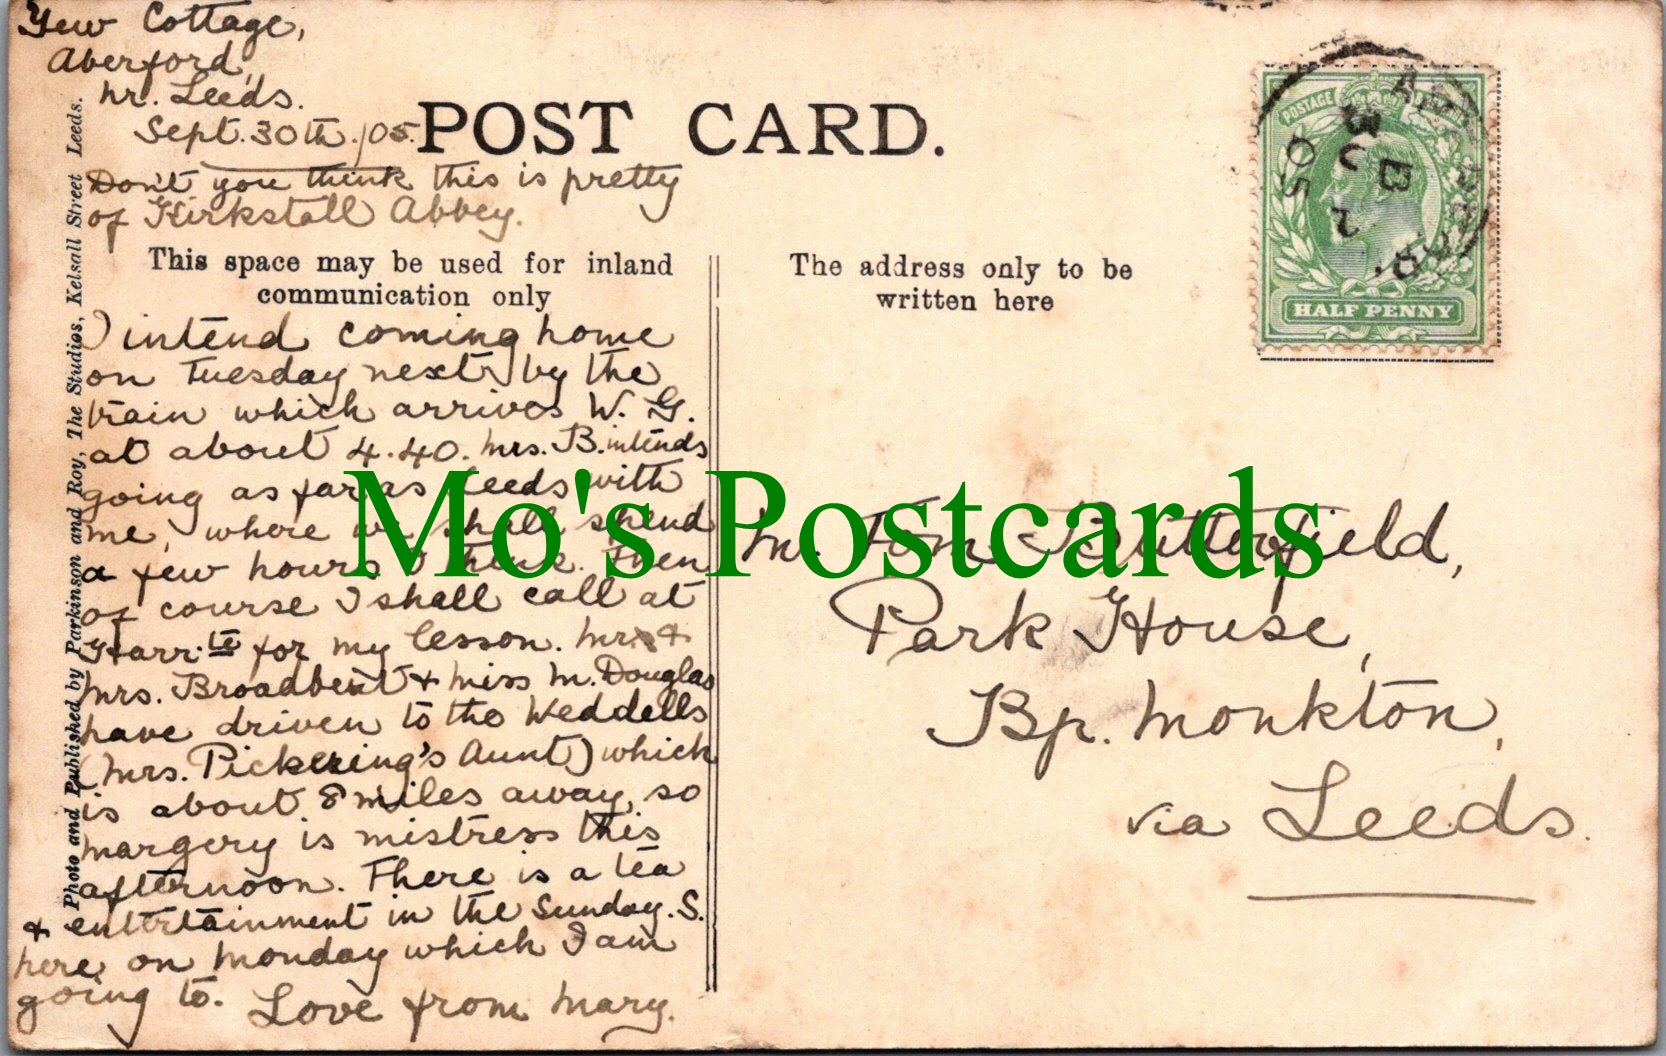 Yew Cottage,
Aberford,
nr. Leeds.
Sept. 30th /05.
POST CARD.
Don't you think this is pretty
of Kirkstall Abbey.
This space may be used for inland
communication only
I intend coming home
on Tuesday next by the
train which arrives W. G.
at about 4.40. Mrs. B. intends
going as far as Leeds with
me, where we shall spend
a few hours I think. Then
of course I shall call at
Harr.te for my lesson. Mr. &
Mrs. Broadbent & Miss M. Douglas
have driven to the Weddells
(Mrs. Pickering's Aunt) which
is about 8 miles away, so
Margery is mistress this
afternoon. There is a tea
& entertainment in the Sunday. S.
here on Monday which I am
going to. Love from Mary.
Photo and Published by Parkinson and Roy, The Studios, Kelsall Street Leeds.
The address only to be
written here
POSTAGE
HALF PENNY
B
2
05
Mr. Tom Butterfield,
Park House,
Bp. Monkton,
via Leeds.
Mo's Postcards